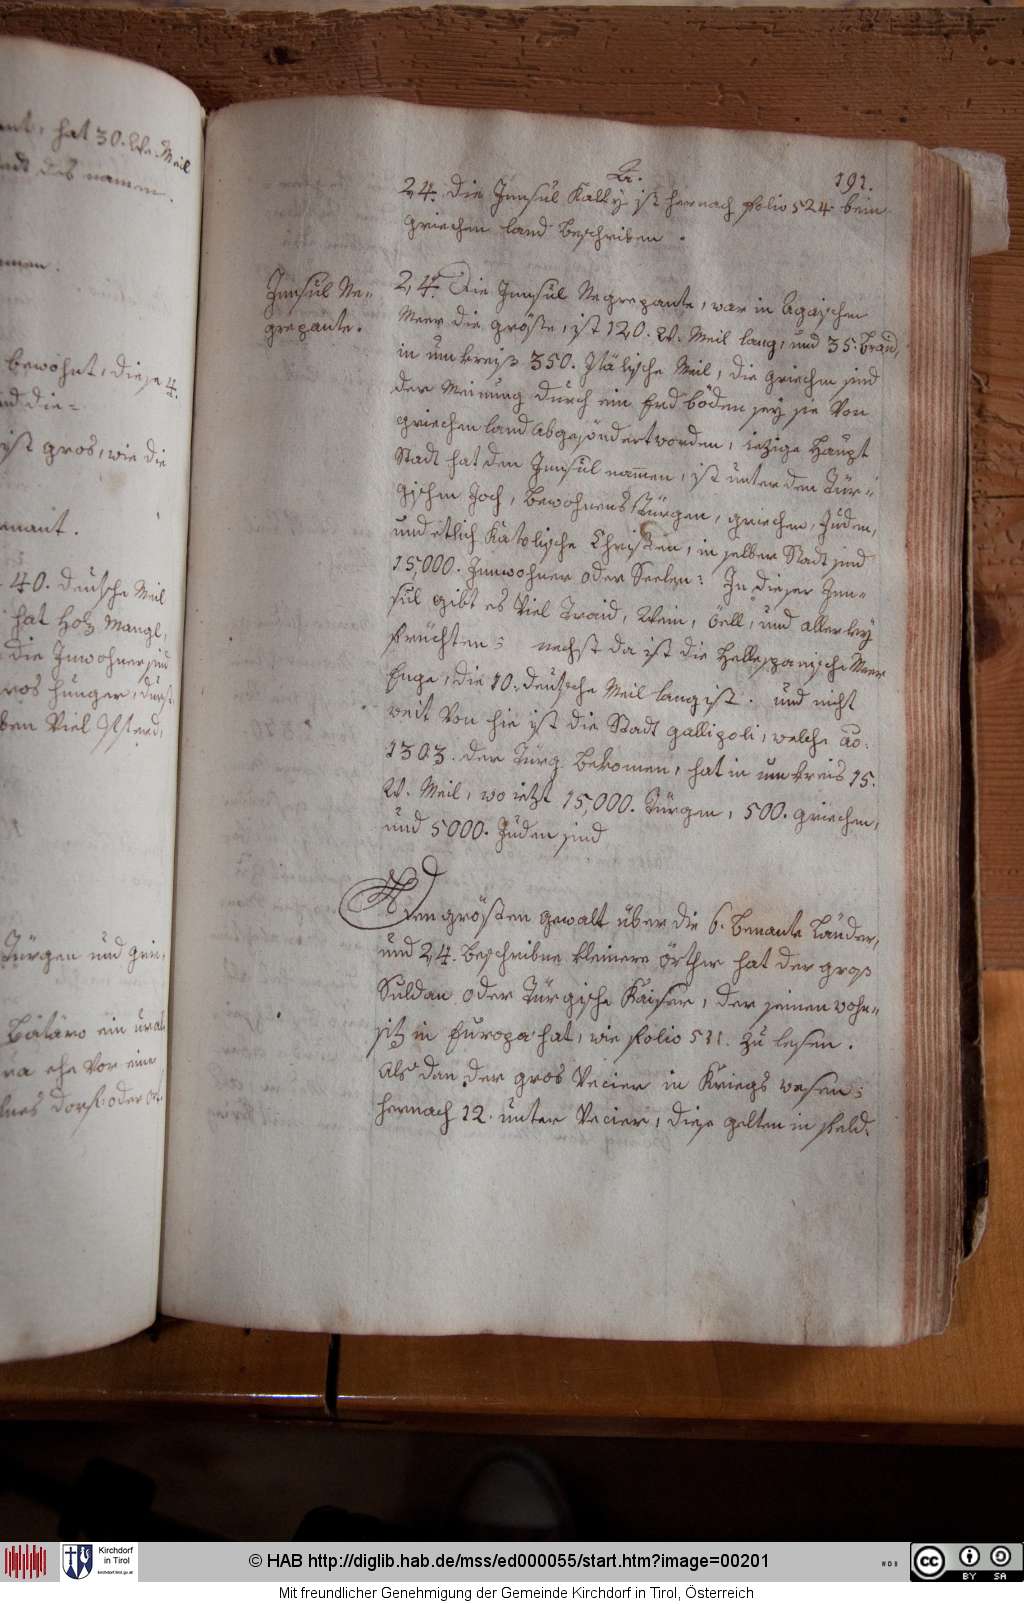 ant, hat 30. We. Meil
des namen.
men.
bewohnt, diese 4.
nd die=
ist gros, wie die
enant.
40. deutsche Meil
hat Holz Mangl,
die Inwohner sind
ros hunger, durst
ben Viel
Türgen und grie=
Bätäro ein ural
ra ehe Vor eine
dorf oder
A. 191.
24. die Innsul Kalky ist hernach folio 524 beim
griechen land beschriben.
Innsul Ne=
grepante.
24. Die Innsul Negrepante, war in Egaischen
Meer die gröste, ist 120. W. Meil lang, und 35. Braid,
in umkreiß 350. Itäliesche Meil, die griechen sind
der Meinung durch ein Erdböden sey sie Von
griechen land abgesöndert worden, iezige Haupt
Stadt hat den Innsul nammen, ist unter den Tür=
gischen Joch, bewohnens Türgen, griechen, Juden,
und etlich Katolische Christen, in selber Stadt sind
15,000. Innwohner oder Seelen: In dieser Inn=
sul gibt es Viel Traid, Wein, öell, und allerley
früchten: nechst da ist die Hellespanische Meer
Enge, die 10. deutsche Meil lang ist. und nicht
weit Von hie ist die Stadt gallipoli, welche ao.
1303. der Türg bekomen, hat in umkreis 15.
W. Meil, wo iezt 15,000. Türgen, 500. griechen,
und 5000. Juden sind
Den grösten gewalt über die 6. benante Länder,
und 24. beschribne kleinere örther hat der groß
Suldan oder Türgische Kaiser, der seinen wohn=
sitz in Europa hat, wie folio 531. zu lesen.
Als dan der gros Vecier in Kriegs wesen:
hernach 12. unter Vecier, diese gelten in feld.
Kirchdorf
in Tirol
kirchdorf.tirol.gv.at
© HAB http://diglib.hab.de/mss/ed000055/start.htm?image=00201
WDB
cc BY SA
Mit freundlicher Genehmigung der Gemeinde Kirchdorf in Tirol, Österreich